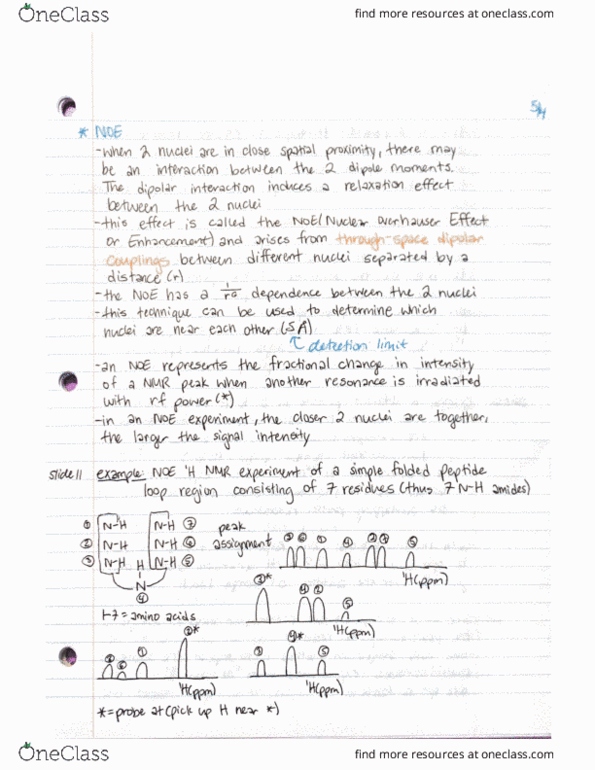 OneClass
find more resources at oneclass.com
5/4
* NOE
-when 2 nuclei are in close spatial proximity, there may
be an interaction between the 2 dipole moments.
The dipolar interaction induces a relaxation effect
between the 2 nuclei
-this effect is called the NOE (Nuclear Overhauser Effect
or Enhancement) and arises from through-space dipolar
couplings between different nuclei separated by a
distance (r)
-the NOE has a dependence between the 2 nuclei
-this technique can be used to determine which
nuclei are near each other (<5Å)
detection limit
-an NOE represents the fractional change in intensity
of a NMR peak when another resonance is irradiated
with rf power (*)
-in an NOE experiment, the closer 2 nuclei are together,
the larger the signal intensity
Slide 11 example: NOE 'H NMR experiment of a simple folded peptide
loop region consisting of 7 residues (thus 7 N-H amides)
① N-H N-H ⑦ peak
② N-H N-H ⑥ assignment
③ N-H H N-H ⑤
N
④
'H(ppm)
1-7 = amino acids
'H(ppm)
'H(ppm)
'H(ppm)
*=probe at (pick up H near *)
OneClass
find more resources at oneclass.com